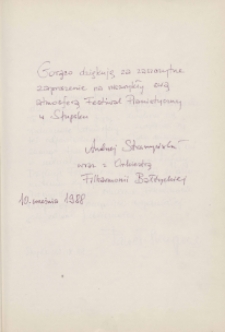 Gorąco dziękuję za zaszczytne
zaproszenie na niezwykły swą
atmosferą Festiwal Pianistyczny
w Słupsku
Andrzej Straszyński
wraz z Orkiestrą
Filharmonii Bałtyckiej
10 września 1988